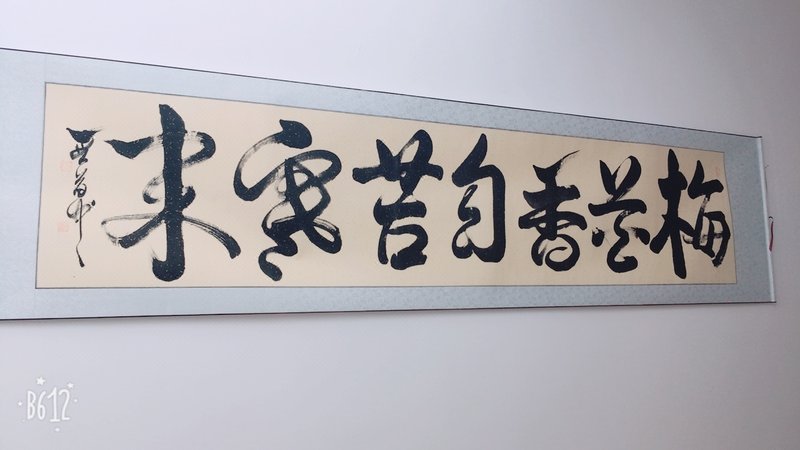 梅花香自苦寒来
B612